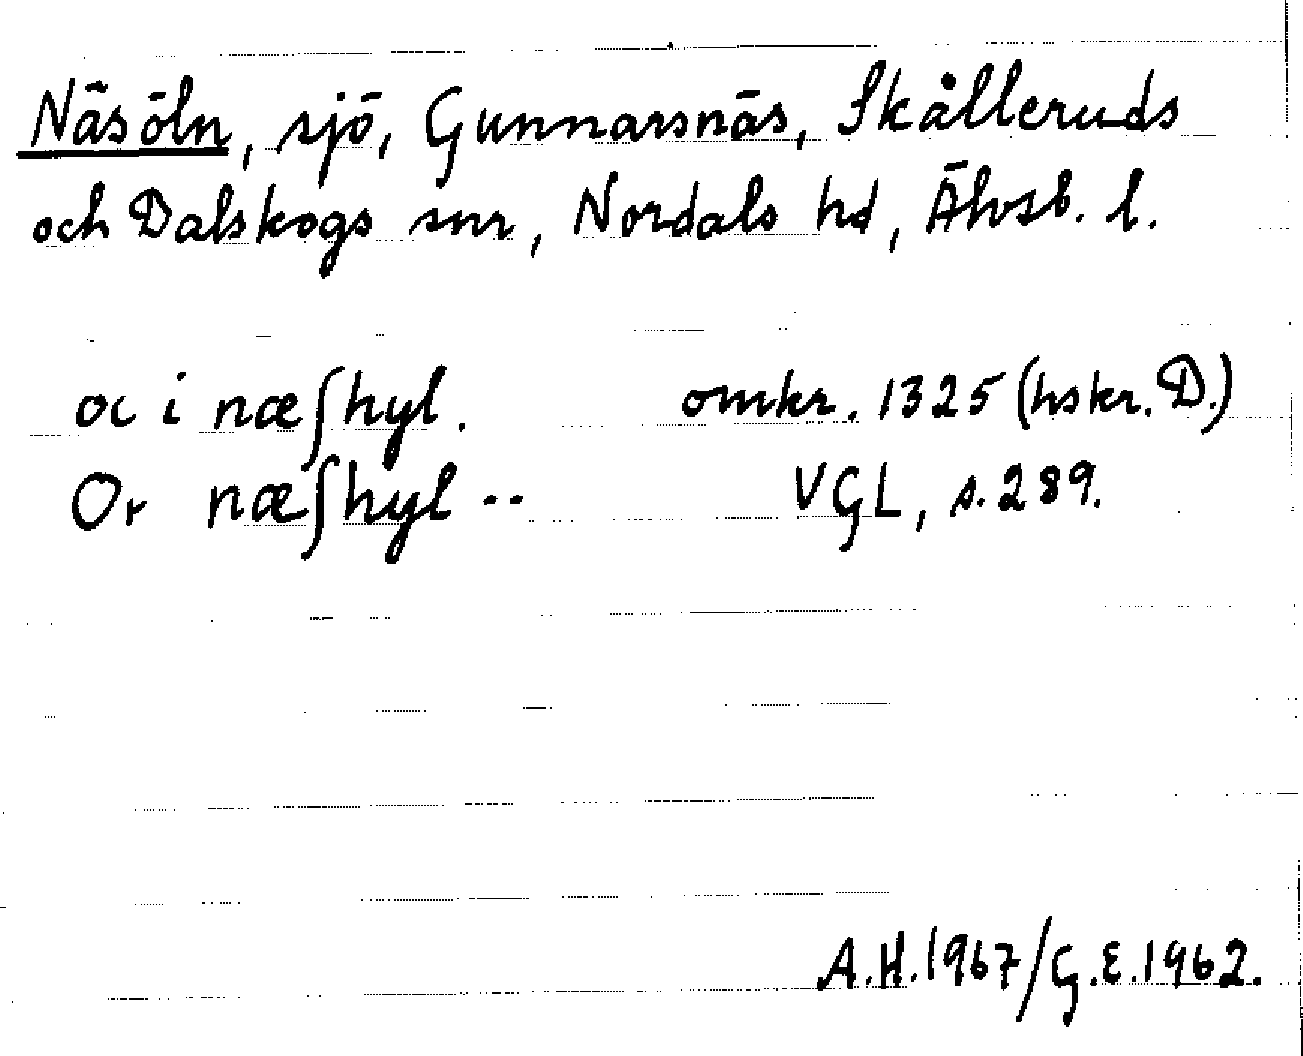 Näsöln, sjö, Gunnarsnäs, Skålleruds
och Dalskogs snr, Nordals hd, Älvsb. l.
oc i næſhyl. omkr. 1325 (hskr. D.)
Or næſhyl .. VGL, s. 289.
A.H. 1967/G.E. 1962.